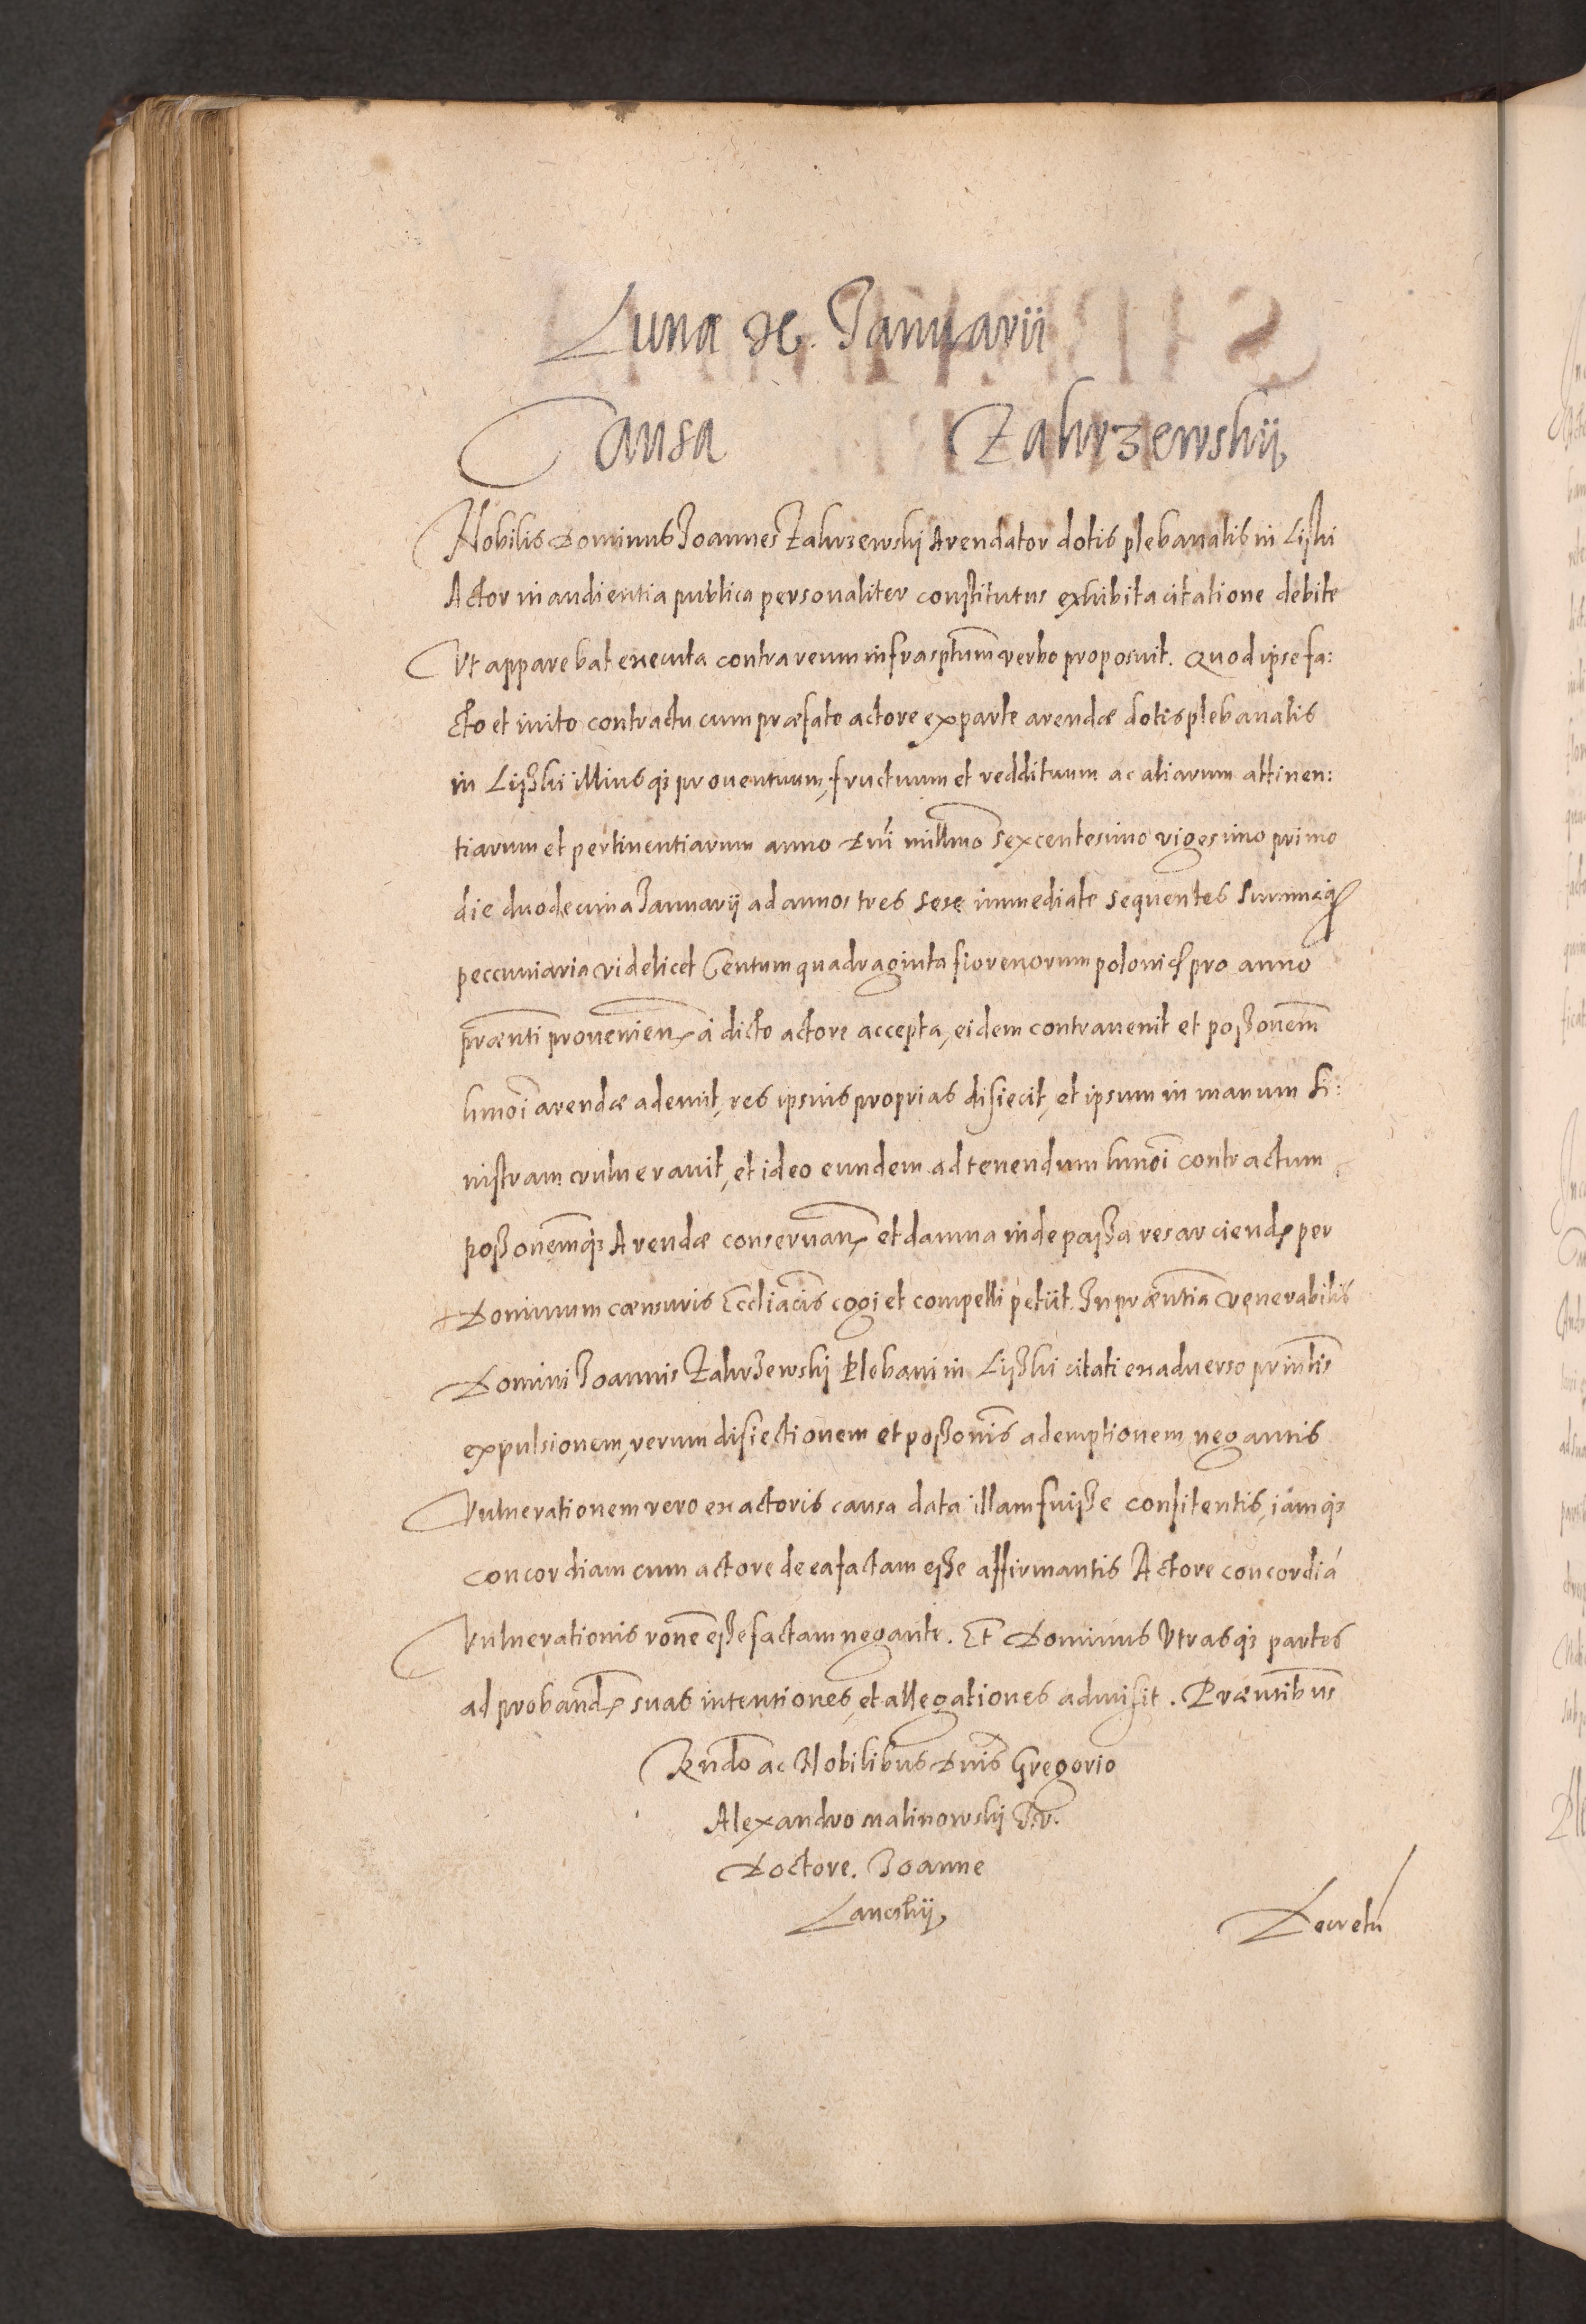 Luna 2e. Januarii
Causa Zakrzewskij
Nobilis Dominus Joannes Zakrzewskj Arendator dotis plebanalis in Liski
Actor in audientia publica personaliter constitutus exhibita citatione debite
Vt apparebat executa contra reum infrascptum verbo proposuit. Quod ipse fa:
cto et inito contractu cum præfato actore ex parte arendæ dotis plebanalis
in Lißki illiusq3 prouentuum, fructuum et reddituum ac aliarum attinen:
tiarum et pertinentiarum anno Dni millmo sexcentesimo vigesimo primo
die duodecima Januarij ad annos tres sese immediate sequentes
peccuniaria videlicet Centum quadraginta florenorum pro anno
præsenti prouenien. à dicto actore accepta, eidem contrauenit et poßonem
hmoi arendæ ademit, res ipsius proprias disiecit, et ipsum in manum si:
nistram vulnerauit, et ideo eundem ad tenendum hmoi contractum
poßonemq3 Arendæ conseruan. et damna inde paßa resarciend. per
Dominum cæensuris Eccliacis cogi et compelli petiit. In præsentia venerabilis
Domini Joannis Zakrzewskj Plebani in Lißki citati ex aduerso prntis
expulsionem, rerum disiectionem et poßonis ademptionem negantis
Vulnerationem vero ex actoris causa data illam fuiße confitentis, iamq3
concordiam cum actore de ea factam eße affirmantis Actore concordiá
Vulnerationis rone eße factam negante. Et Dominus Vtrasq3 partes
ad proband. suas intentiones, et allegationes admisit. Præsentibus
Rndo ac Nobilibus Dnis Gregorio
Alexandro Malinowskj J.V.
Doctore. Joanne
Lanckij
Decretu